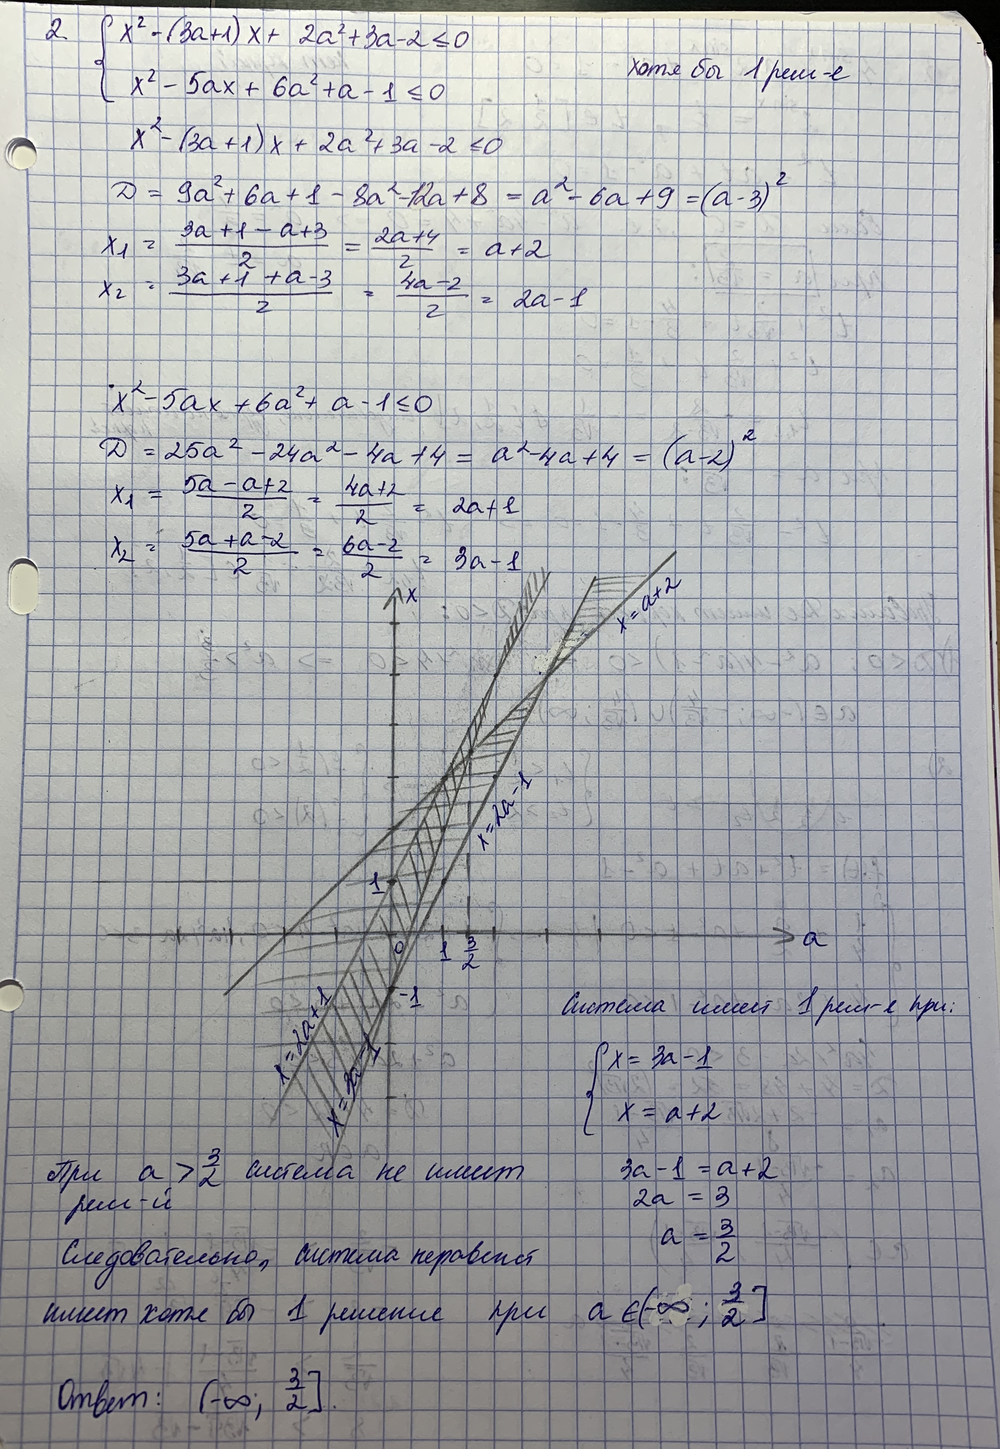 2. { x² - (3a+1)x + 2a² + 3a - 2 ≤ 0
x² - 5ax + 6a² + a - 1 ≤ 0
хотя бы 1 реш-е
x² - (3a+1)x + 2a² + 3a - 2 ≤ 0
D = 9a² + 6a + 1 - 8a² - 12a + 8 = a² - 6a + 9 = (a-3)²
x1 = (3a+1-a+3)/2 = (2a+4)/2 = a+2
x2 = (3a+1+a-3)/2 = (4a-2)/2 = 2a-1
x² - 5ax + 6a² + a - 1 ≤ 0
D = 25a² - 24a² - 4a + 4 = a² - 4a + 4 = (a-2)²
x1 = (5a-a+2)/2 = (4a+2)/2 = 2a+1
x2 = (5a+a-2)/2 = (6a-2)/2 = 3a-1
x
x = a+2
x = 2a-1
1
0
1 3/2
a
-1
x = 2a+1
x = 3a-1
Система имеет 1 реш-е при:
{ x = 3a-1
x = a+2
3a-1 = a+2
2a = 3
a = 3/2
При a > 3/2 система не имеет
реш-й
Следовательно, система неравенст
имеет хотя бы 1 решение при a ∈ (-∞; 3/2]
Ответ: (-∞; 3/2].